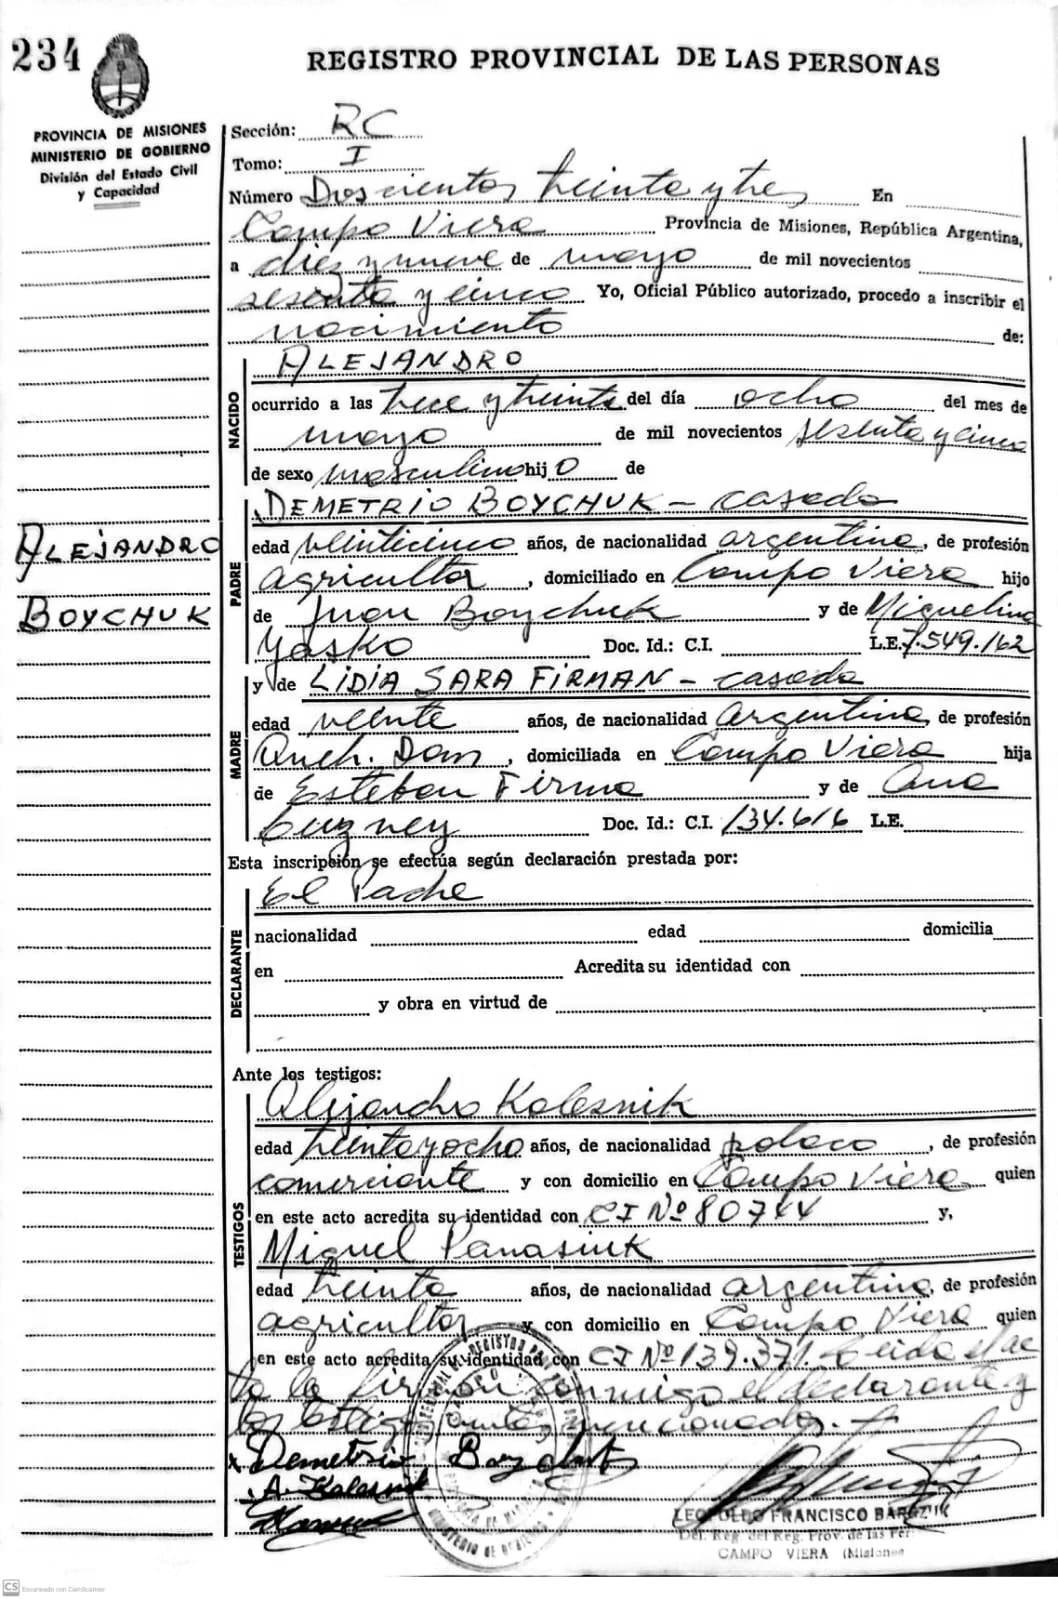 234
REGISTRO PROVINCIAL DE LAS PERSONAS
PROVINCIA DE MISIONES
MINISTERIO DE GOBIERNO
División del Estado Civil
y Capacidad
Sección: RC
Tomo: I
Número Doscientos treinta y tres En
Campo Viera Provincia de Misiones, República Argentina,
a diez y nueve de mayo de mil novecientos
sesenta y cinco Yo, Oficial Público autorizado, procedo a inscribir el
nacimiento de:
NACIDO
ALEJANDRO
ocurrido a las trece y treinta del día ocho del mes de
mayo de mil novecientos sesenta y cinco
de sexo masculino hijo de
ALEJANDRO
BOYCHUK
PADRE
DEMETRIO BOYCHUK - casado
edad veinticinco años, de nacionalidad argentina, de profesión
agricultor, domiciliado en Campo Viera hijo
de Juan Boychuk y de Miguelina
Yasko Doc. Id.: C.I. L.E. 7.549.162
MADRE
y de LIDIA SARA FIRMAN - casada
edad veinte años, de nacionalidad argentina, de profesión
Queh. Dom, domiciliada en Campo Viera hija
de Esteban Firma y de Ana
Doc. Id.: C.I. 134.616 L.E.
Esta inscripción se efectúa según declaración prestada por:
DECLARANTE
El Padre
nacionalidad edad domicilia
en Acredita su identidad con
y obra en virtud de
Ante los testigos:
TESTIGOS
Alejandro Kolesnik
edad treinta y ocho años, de nacionalidad polaco, de profesión
comerciante y con domicilio en Campo Viera quien
en este acto acredita su identidad con CI Nº 80744 y,
Miguel Panasiuk
edad treinta años, de nacionalidad argentina, de profesión
agricultor y con domicilio en Campo Viera quien
en este acto acredita su identidad con CI Nº 139.371. Leida el ac
ta la firman conmigo el declarante y
los testigos antes mencionados.
x Demetrio Boychuk
A. Kolesnik
LEOPOLDO FRANCISCO
Del. Reg. del Reg. Prov. de las Per
CAMPO VIERA (Misiones
CS Escaneado con CamScanner